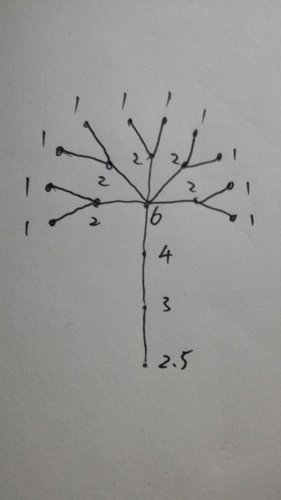 1 1 1
1 1
2 2
1 2 2 1
1 2 6 1
4
3
2.5